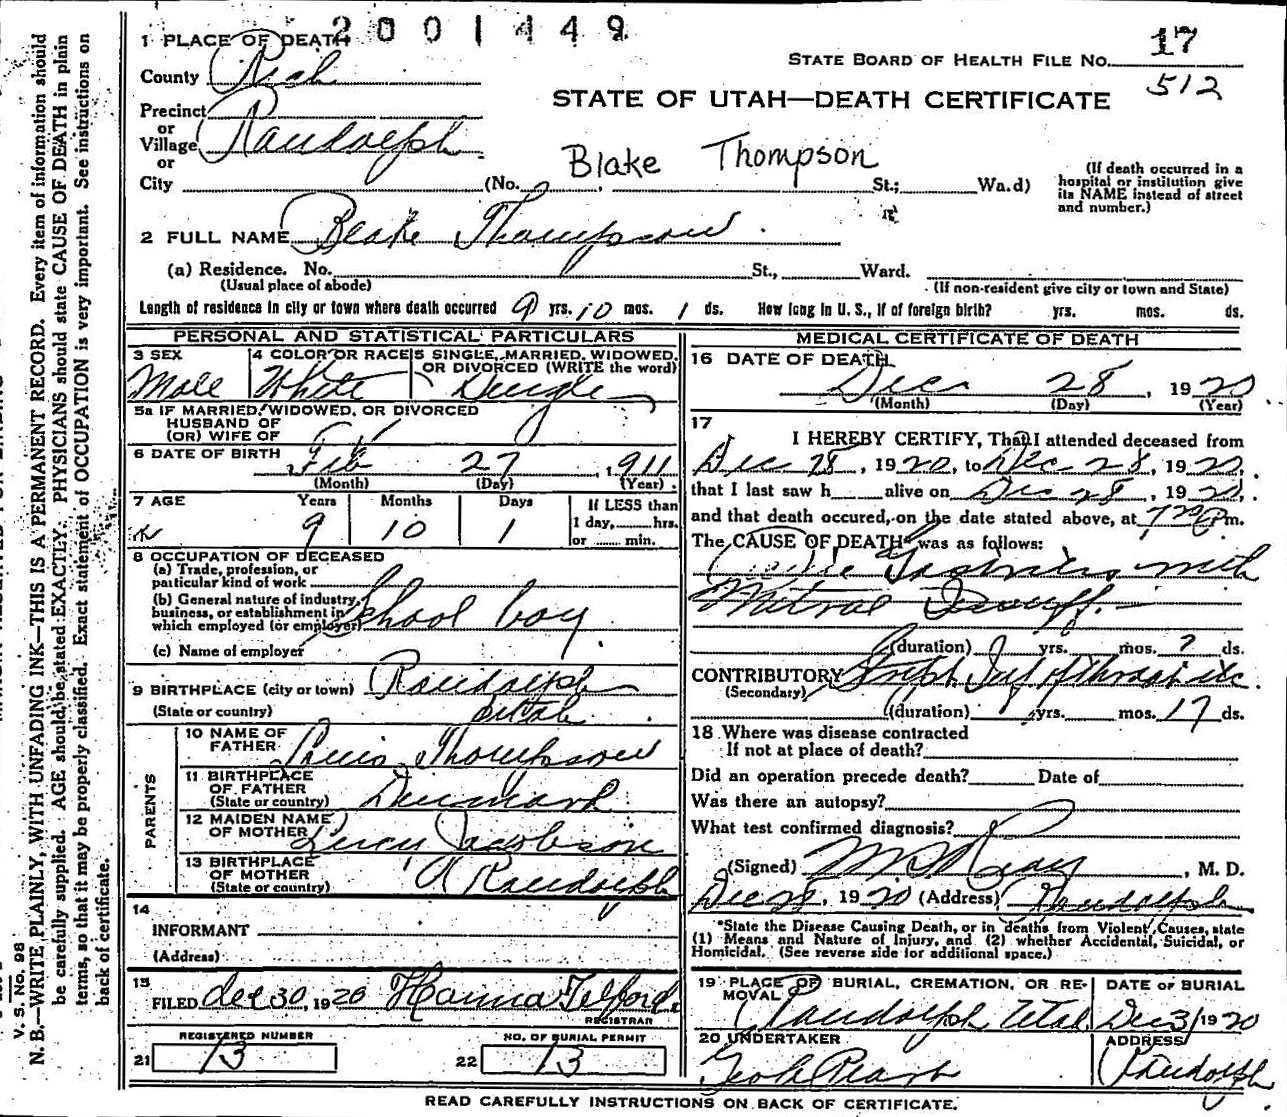 2001449
1 PLACE OF DEATH
County Rich
Precinct
or
Village Randolph
or
City (No. St.; Wa.d)
STATE BOARD OF HEALTH FILE NO. 17
512
STATE OF UTAH—DEATH CERTIFICATE
Blake Thompson
(If death occurred in a
hospital or institution give
its NAME instead of street
and number.)
2 FULL NAME Blake Thompson
(a) Residence. No. St., Ward.
(Usual place of abode) (If non-resident give city or town and State)
Length of residence in city or town where death occurred 9 yrs. 10 mos. 1 ds. How long in U. S., if of foreign birth? yrs. mos. ds.
PERSONAL AND STATISTICAL PARTICULARS
3 SEX 4 COLOR OR RACE 5 SINGLE, MARRIED, WIDOWED,
OR DIVORCED (WRITE the word)
Male White Single
5a IF MARRIED, WIDOWED, OR DIVORCED
HUSBAND OF
(OR) WIFE OF
6 DATE OF BIRTH Feb 27 1911
(Month) (Day) (Year)
7 AGE Years Months Days If LESS than
9 10 1 1 day, hrs.
or min.
8 OCCUPATION OF DECEASED
(a) Trade, profession, or
particular kind of work
(b) General nature of industry,
business, or establishment in
which employed (or employer) School boy
(c) Name of employer
9 BIRTHPLACE (city or town) Randolph
(State or country) Utah
PARENTS
10 NAME OF
FATHER Thompson
11 BIRTHPLACE
OF FATHER
(State or country) Denmark
12 MAIDEN NAME
OF MOTHER Lucy Jacobson
13 BIRTHPLACE
OF MOTHER
(State or country) Randolph
14
INFORMANT
(Address)
15
FILED Dec 30, 1920 Hanna Telford
REGISTRAR
REGISTERED NUMBER NO. OF BURIAL PERMIT
21 13 22 13
MEDICAL CERTIFICATE OF DEATH
16 DATE OF DEATH
Dec 28, 1920
(Month) (Day) (Year)
17
I HEREBY CERTIFY, That I attended deceased from
Dec 28, 1920, to Dec 28, 1920,
that I last saw h alive on Dec 28, 1920,
and that death occured, on the date stated above, at 7 Pm.
The CAUSE OF DEATH* was as follows:
with
Mitral
(duration) yrs. mos. ? ds.
CONTRIBUTORY Strep. Inf of throat etc.
(Secondary)
(duration) yrs. mos. 17 ds.
18 Where was disease contracted
If not at place of death?
Did an operation precede death? Date of
Was there an autopsy?
What test confirmed diagnosis?
(Signed) , M. D.
Dec 28, 1920 (Address) Randolph
*State the Disease Causing Death, or in deaths from Violent Causes, state
(1) Means and Nature of Injury, and (2) whether Accidental, Suicidal, or
Homicidal. (See reverse side for additional space.)
19 PLACE OF BURIAL, CREMATION, OR RE- DATE OF BURIAL
MOVAL
Randolph Utah Dec 31 1920
20 UNDERTAKER ADDRESS
Randolph
READ CAREFULLY INSTRUCTIONS ON BACK OF CERTIFICATE.
V. S. No. 98
N. B.—WRITE PLAINLY, WITH UNFADING INK—THIS IS A PERMANENT RECORD. Every item of information should
be carefully supplied. AGE should be stated EXACTLY. PHYSICIANS should state CAUSE OF DEATH in plain
terms, so that it may be properly classified. Exact statement of OCCUPATION is very important. See instructions on
back of certificate.